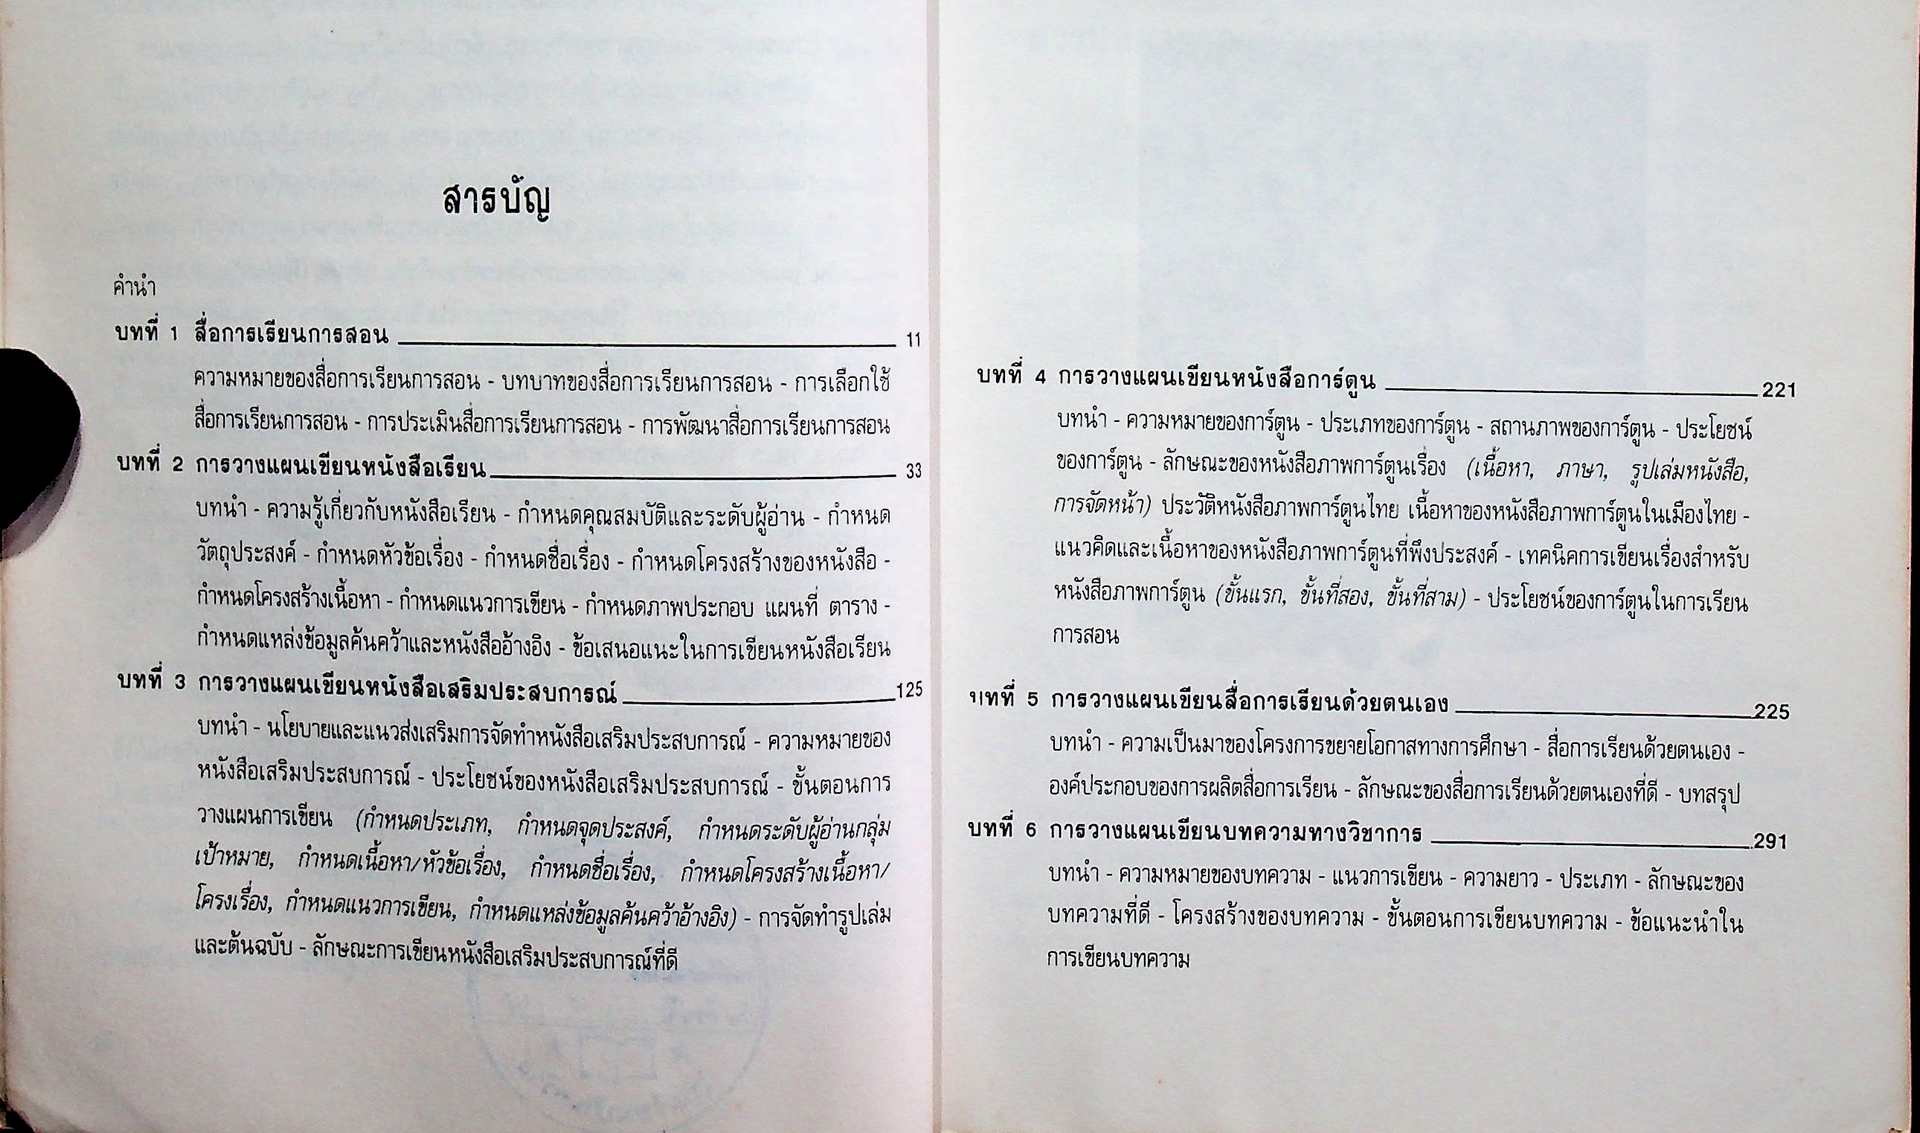 สารบัญ
คำนำ
บทที่ 1 สื่อการเรียนการสอน 11
ความหมายของสื่อการเรียนการสอน - บทบาทของสื่อการเรียนการสอน - การเลือกใช้
สื่อการเรียนการสอน - การประเมินสื่อการเรียนการสอน - การพัฒนาสื่อการเรียนการสอน
บทที่ 2 การวางแผนเขียนหนังสือเรียน 33
บทนำ - ความรู้เกี่ยวกับหนังสือเรียน - กำหนดคุณสมบัติและระดับผู้อ่าน - กำหนด
วัตถุประสงค์ - กำหนดหัวข้อเรื่อง - กำหนดชื่อเรื่อง - กำหนดโครงสร้างของหนังสือ -
กำหนดโครงสร้างเนื้อหา - กำหนดแนวการเขียน - กำหนดภาพประกอบ แผนที่ ตาราง -
กำหนดแหล่งข้อมูลค้นคว้าและหนังสืออ้างอิง - ข้อเสนอแนะในการเขียนหนังสือเรียน
บทที่ 3 การวางแผนเขียนหนังสือเสริมประสบการณ์ 125
บทนำ - นโยบายและแนวส่งเสริมการจัดทำหนังสือเสริมประสบการณ์ - ความหมายของ
หนังสือเสริมประสบการณ์ - ประโยชน์ของหนังสือเสริมประสบการณ์ - ขั้นตอนการ
วางแผนการเขียน (กำหนดประเภท, กำหนดจุดประสงค์, กำหนดระดับผู้อ่านกลุ่ม
เป้าหมาย, กำหนดเนื้อหา/หัวข้อเรื่อง, กำหนดชื่อเรื่อง, กำหนดโครงสร้างเนื้อหา/
โครงเรื่อง, กำหนดแนวการเขียน, กำหนดแหล่งข้อมูลค้นคว้าอ้างอิง) - การจัดทำรูปเล่ม
และต้นฉบับ - ลักษณะการเขียนหนังสือเสริมประสบการณ์ที่ดี
บทที่ 4 การวางแผนเขียนหนังสือการ์ตูน 221
บทนำ - ความหมายของการ์ตูน - ประเภทของการ์ตูน - สถานภาพของการ์ตูน - ประโยชน์
ของการ์ตูน - ลักษณะของหนังสือภาพการ์ตูนเรื่อง (เนื้อหา, ภาษา, รูปเล่มหนังสือ,
การจัดหน้า) ประวัติหนังสือภาพการ์ตูนไทย เนื้อหาของหนังสือภาพการ์ตูนในเมืองไทย -
แนวคิดและเนื้อหาของหนังสือภาพการ์ตูนที่พึงประสงค์ - เทคนิคการเขียนเรื่องสำหรับ
หนังสือภาพการ์ตูน (ขั้นแรก, ขั้นที่สอง, ขั้นที่สาม) - ประโยชน์ของการ์ตูนในการเรียน
การสอน
บทที่ 5 การวางแผนเขียนสื่อการเรียนด้วยตนเอง 225
บทนำ - ความเป็นมาของโครงการขยายโอกาสทางการศึกษา - สื่อการเรียนด้วยตนเอง -
องค์ประกอบของการผลิตสื่อการเรียน - ลักษณะของสื่อการเรียนด้วยตนเองที่ดี - บทสรุป
บทที่ 6 การวางแผนเขียนบทความทางวิชาการ 291
บทนำ - ความหมายของบทความ - แนวการเขียน - ความยาว - ประเภท - ลักษณะของ
บทความที่ดี - โครงสร้างของบทความ - ขั้นตอนการเขียนบทความ - ข้อแนะนำใน
การเขียนบทความ